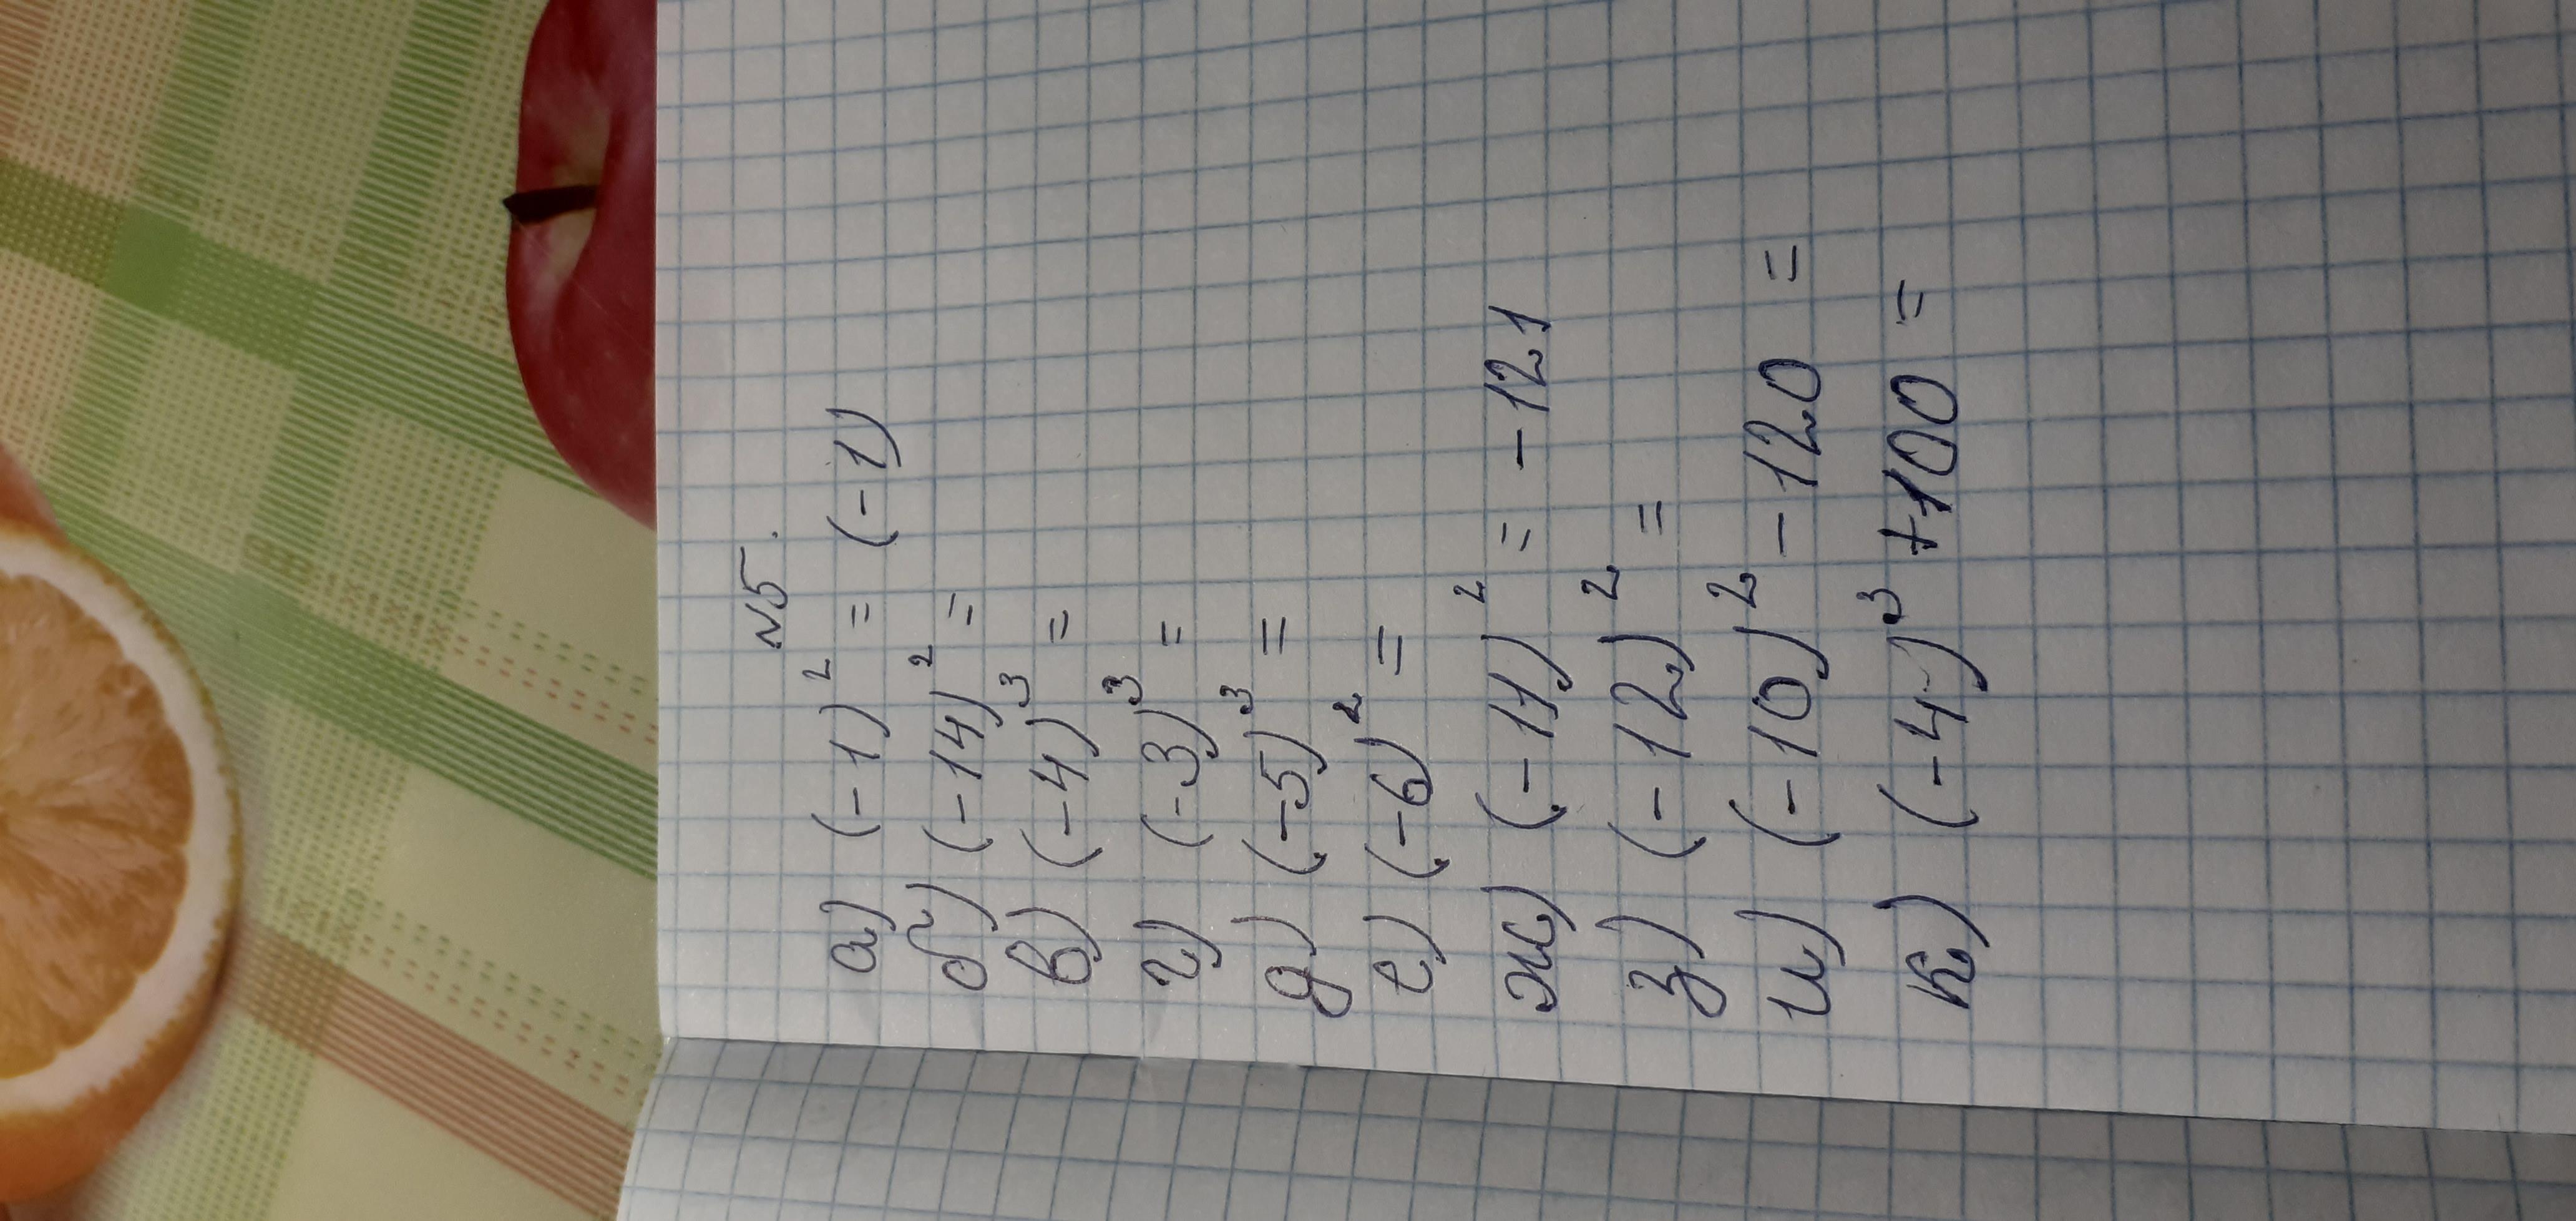 №5.
а) (-1)² = (-1)
б) (-14)² =
в) (-4)³ =
г) (-3)³ =
д) (-5)³ =
е) (-6)² =
ж) (-11)² = -121
з) (-12)² =
и) (-10)² -120 =
к) (-4)³ +100 =